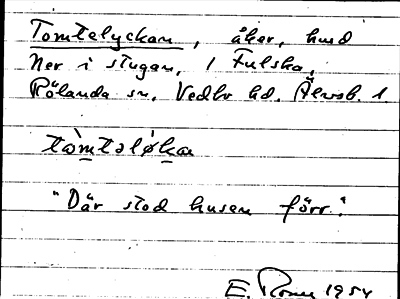 Tomtelyckan, åker, hmd
Ner i stugan, 1 Fulska,
Rölanda sn, Vedbo hd, Älvsb. l
tòmtəlỳkan
"Där stod husen förr."
E. 1954